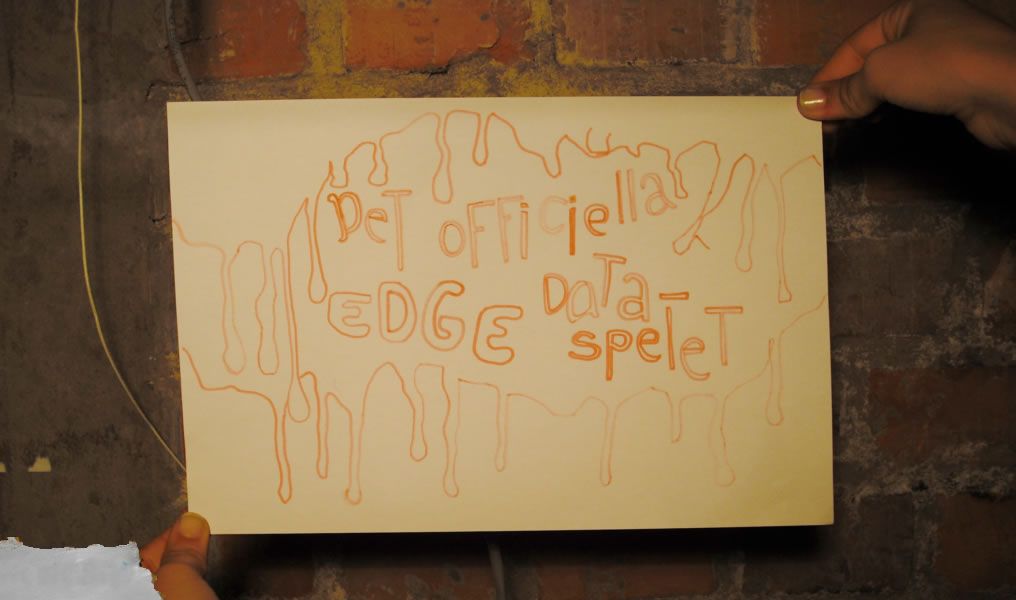 DeT OFFiciella
EDGE DaTa-
speleT